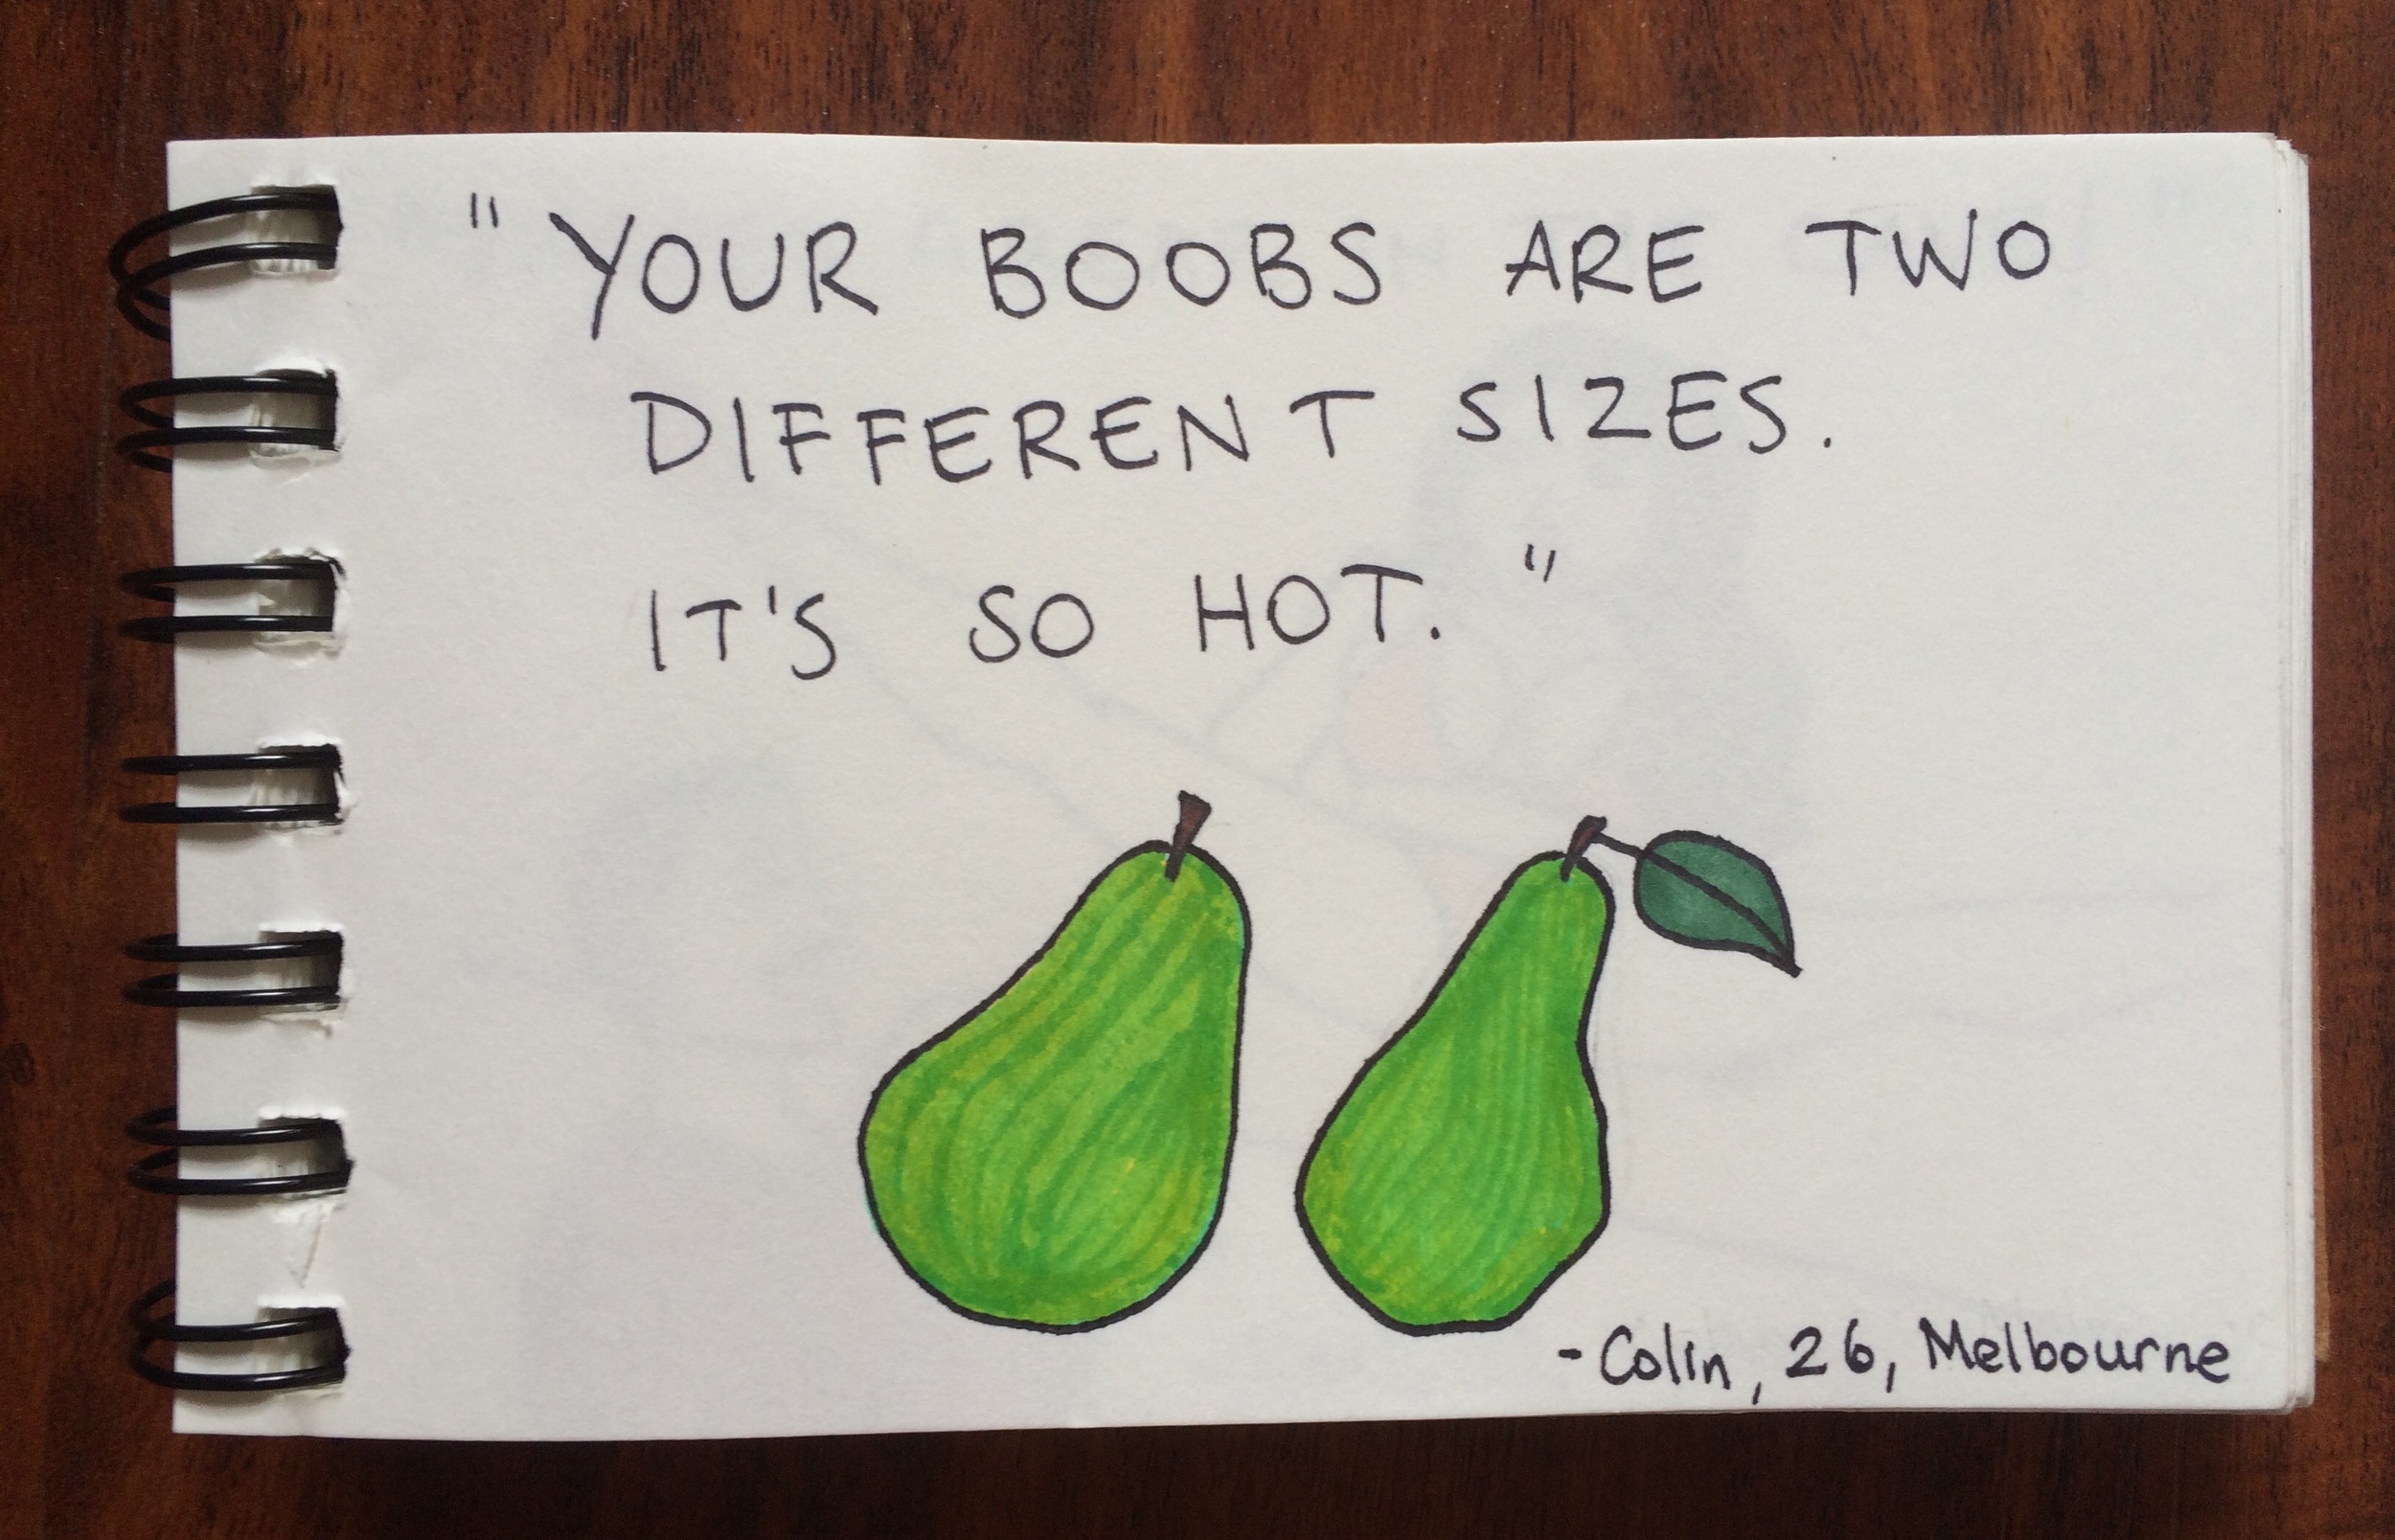 "YOUR BOOBS ARE TWO
DIFFERENT SIZES.
IT'S SO HOT."
-Colin, 26, Melbourne